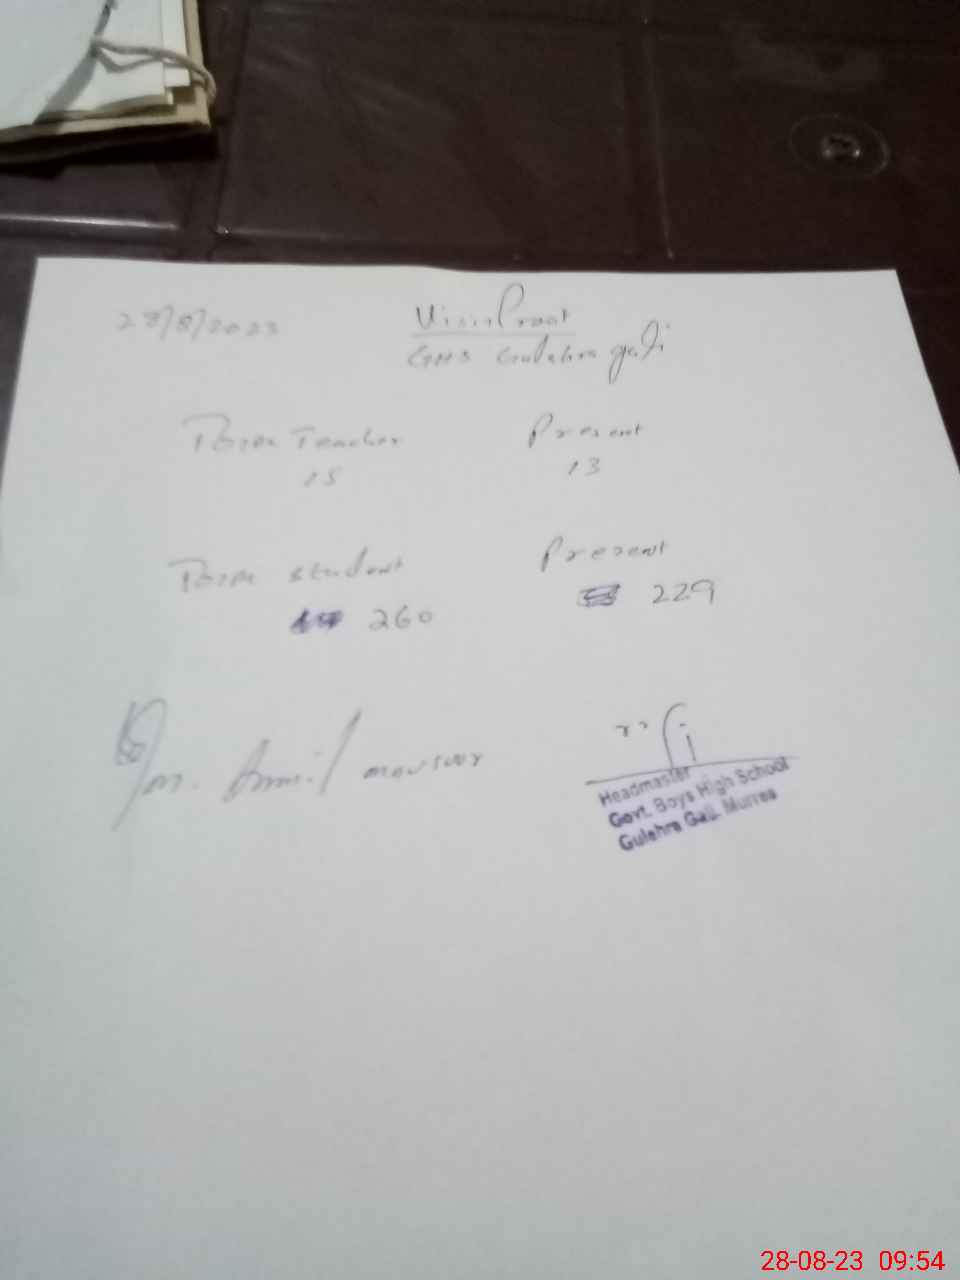 28/8/2023
Visit Proof
GHS Gulehra gali
Total Teacher Present
15 13
Total student Present
260 229
M. Jamil mansoor
Headmaster
Govt. Boys High School
Gulehra Gali Murree
28-08-23 09:54